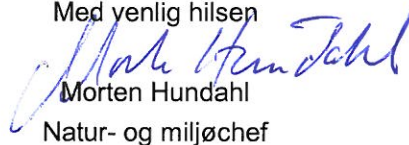 Med venlig hilsen
Mork Hundahl
Morten Hundahl
Natur- og miljøchef